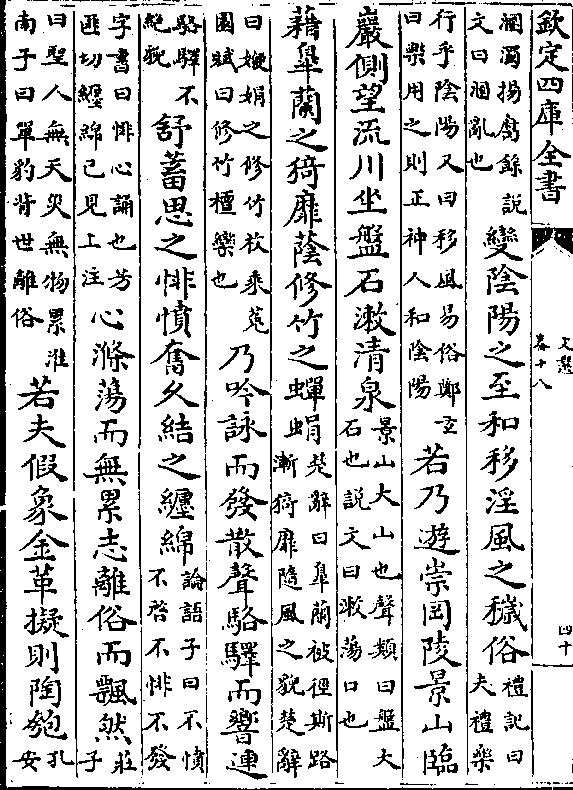 欽定四庫全書
文選
卷十八
四十
溷濁揚腐餘說
文曰溷亂也
變陰陽之至和移淫風之穢俗
禮記曰
夫禮樂
行乎陰陽又曰移風易俗鄭玄
曰樂用之則正神人和陰陽
若乃遊崇岡陵景山臨
巖側望流川坐盤石漱清泉
景山大山也聲類曰盤大
石也説文曰漱蕩口也
藉臯蘭之猗靡蔭修竹之蟬蜎
楚辭曰臯蘭被徑斯路
漸猗靡隨風之貌楚辭
曰㛹娟之修竹枚乘菟
園賦曰修竹檀欒也
乃吟詠而發散聲駱驛而響連
駱驛不
絶貌
舒蓄思之悱憤奮久結之纏綿
論語子曰不憤
不啓不悱不發
字書曰悱心誦也芳
匪切纏綿已見上注
心滌蕩而無累志離俗而飄然
莊
子
曰聖人無天災無物累淮
南子曰單豹背世離俗
若夫假象金革擬則陶匏
孔
安